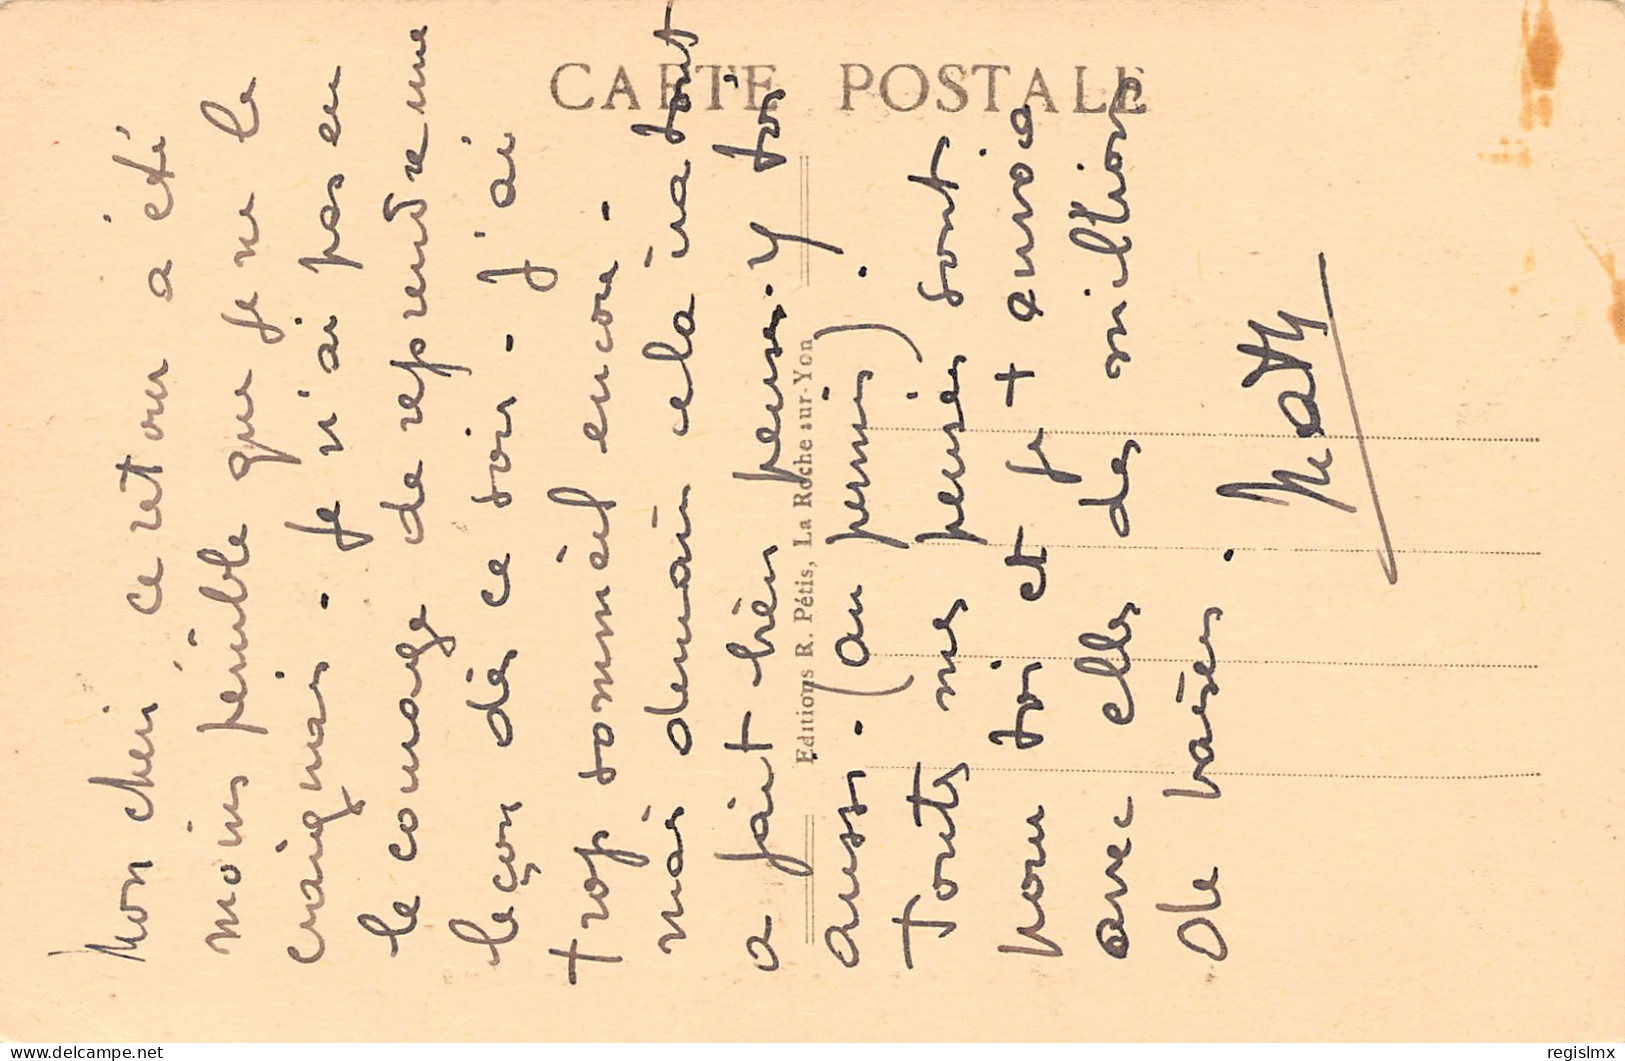 CARTE POSTALE
Editions R. Pétis, La Roche-sur-Yon
Mon chéri, ce retour a été
moins pénible que je ne le
craignais. Je n'ai pas eu
le courage de reprendre une
leçon dès ce soir. J'ai
trop sommeil encore.
mais demain cela ira tout
a fait bien penses-y toi
aussi. (au permis).
Toutes mes pensées sont
pour toi et je t'envoie
avec elles des millions
de baisers.
delcampe.net
regislmx